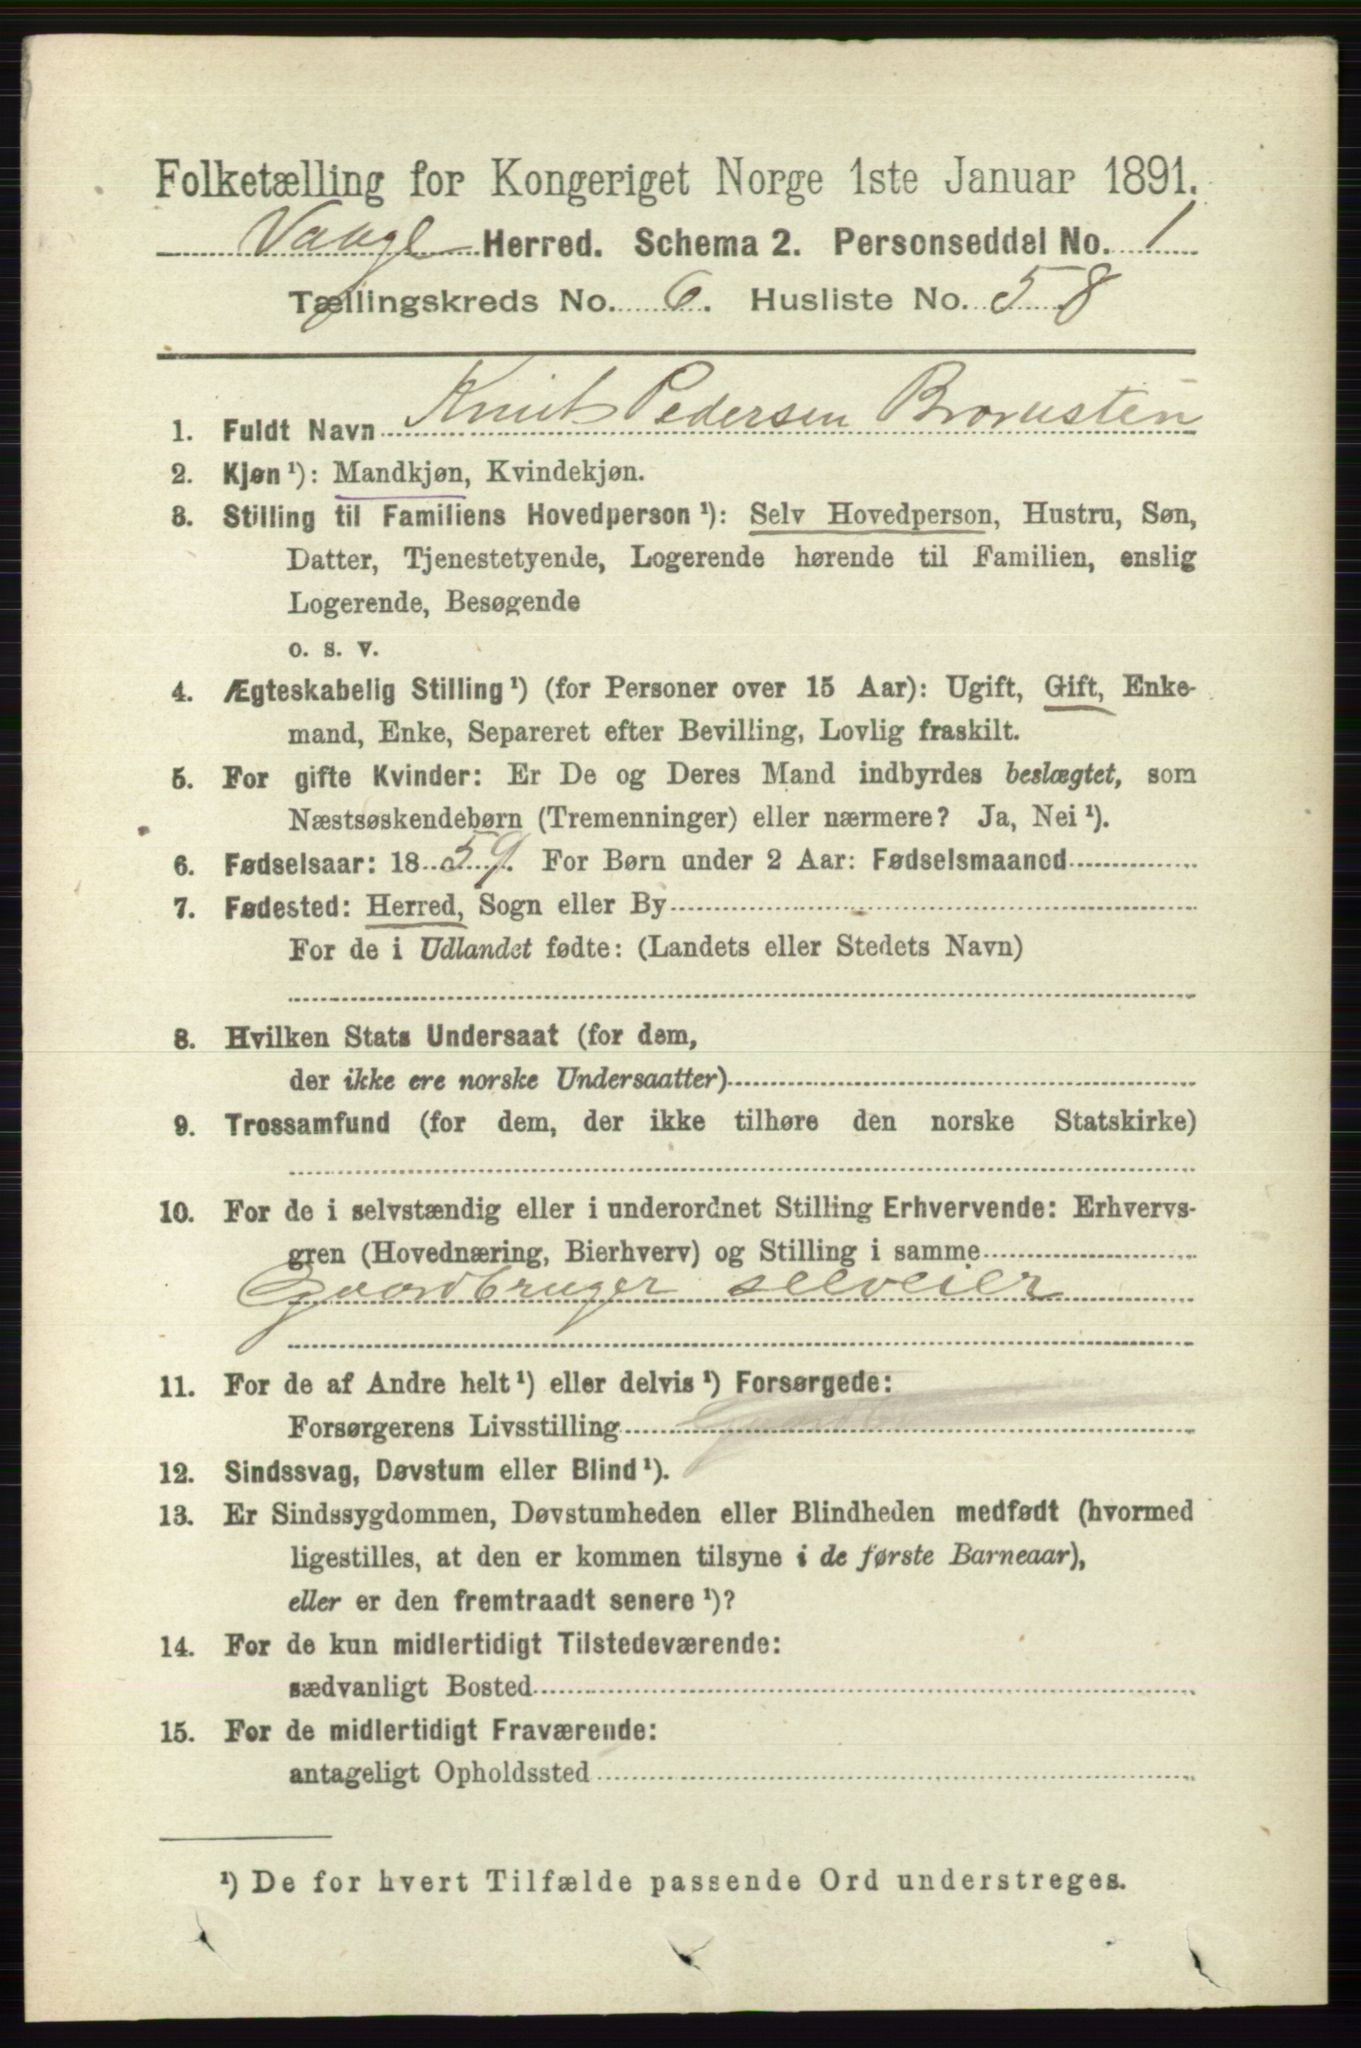 Folketælling for Kongeriget Norge 1ste Januar 1891.
Vaage Herred. Schema 2. Personseddel No. 1
Tællingskreds No. 6. Husliste No. 58
1. Fuldt Navn Knut Pedersen
2. Kjøn ¹): Mandkjøn, Kvindekjøn.
3. Stilling til Familiens Hovedperson ¹): Selv Hovedperson, Hustru, Søn,
Datter, Tjenestetyende, Logerende hørende til Familien, enslig
Logerende, Besøgende
o. s. v.
4. Ægteskabelig Stilling ¹) (for Personer over 15 Aar): Ugift, Gift, Enke-
mand, Enke, Separeret efter Bevilling, Lovlig fraskilt.
5. For gifte Kvinder: Er De og Deres Mand indbyrdes beslægtet, som
Næstsøskendebørn (Tremenninger) eller nærmere? Ja, Nei ¹).
6. Fødselsaar: 1859. For Børn under 2 Aar: Fødselsmaaned
7. Fødested: Herred, Sogn eller By
For de i Udlandet fødte: (Landets eller Stedets Navn)
8. Hvilken Stats Undersaat (for dem,
der ikke ere norske Undersaatter)
9. Trossamfund (for dem, der ikke tilhøre den norske Statskirke)
10. For de i selvstændig eller i underordnet Stilling Erhvervende: Erhvervs-
gren (Hovednæring, Bierhverv) og Stilling i samme
Gaardbruger selveier
11. For de af Andre helt ¹) eller delvis ¹) Forsørgede:
Forsørgerens Livsstilling
12. Sindssvag, Døvstum eller Blind ¹).
13. Er Sindssygdommen, Døvstumheden eller Blindheden medfødt (hvormed
ligestilles, at den er kommen tilsyne i de første Barneaar),
eller er den fremtraadt senere ¹)?
14. For de kun midlertidigt Tilstedeværende:
sædvanligt Bosted
15. For de midlertidigt Fraværende:
antageligt Opholdssted
¹) De for hvert Tilfælde passende Ord understreges.